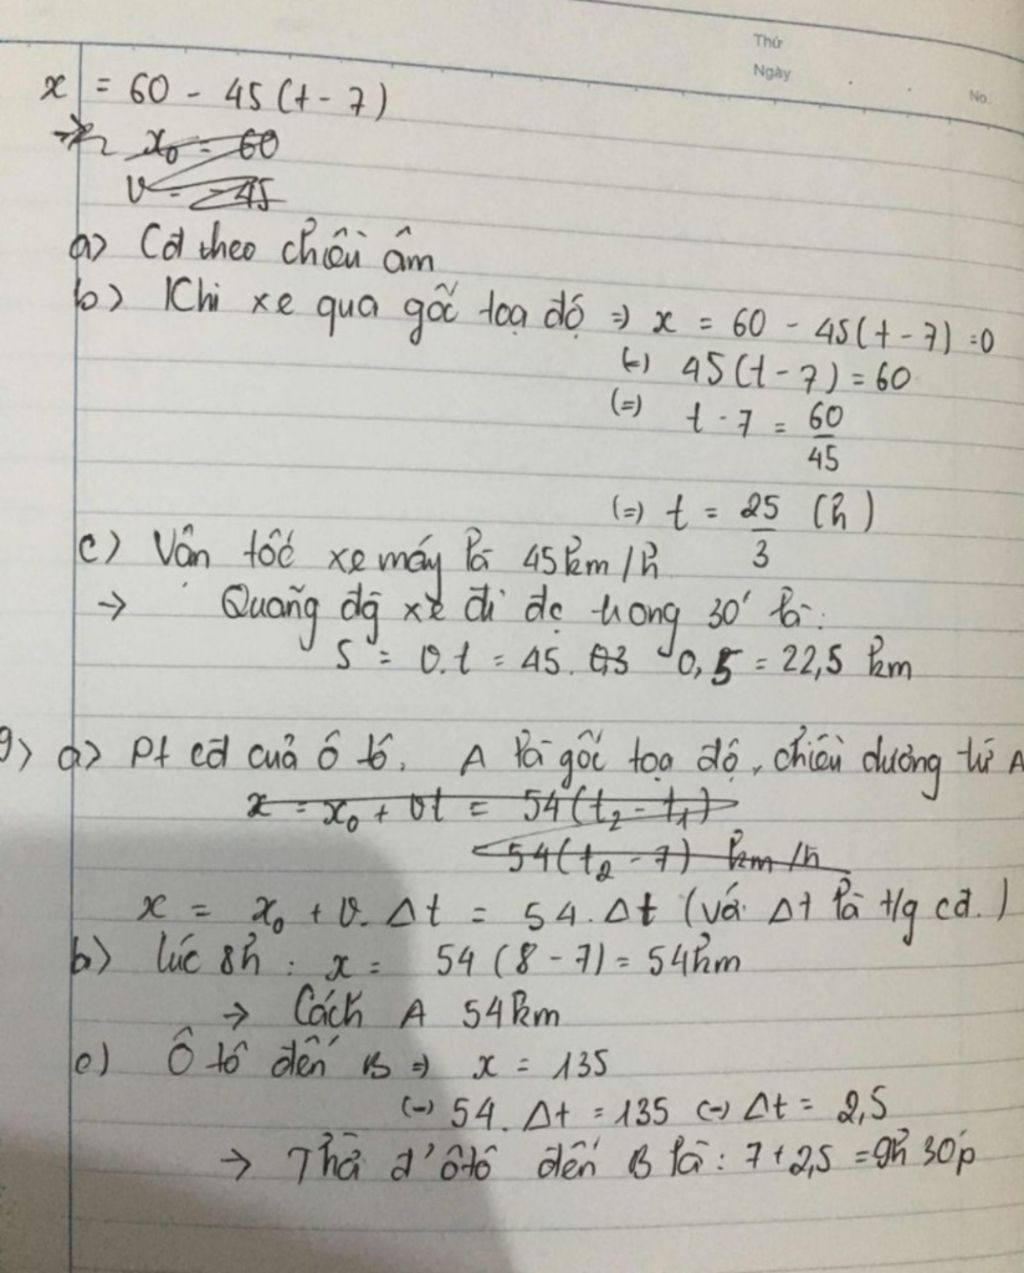 Thứ
Ngày
No.
x = 60 - 45(t - 7)
x₀ = 60
v = -45
a> Cđ theo chiều âm
b> Khi xe qua gốc toạ độ => x = 60 - 45(t - 7) = 0
(=) 45(t - 7) = 60
(=) t - 7 = 60/45
(=) t = 25/3 (h)
c) Vận tốc xe máy là 45km/h
→ Quãng đg xe đi đc trong 30' là:
S = v.t = 45. 0,5 = 22,5 km
9> a> Pt cđ cuả ô tô. A là gốc toạ độ, chiều dương từ A
x = x₀ + vt = 54(t₂ - t₁)
54(t₂ - 7) km/h
x = x₀ + v. Δt = 54. Δt (với Δt là t/g cđ.)
b> lúc 8h : x = 54 (8 - 7) = 54km
→ Cách A 54km
c) Ô tô đến B => x = 135
(=) 54. Δt = 135 (=) Δt = 2,5
→ đ' ôtô đến B là : 7 + 2,5 = 9h 30p